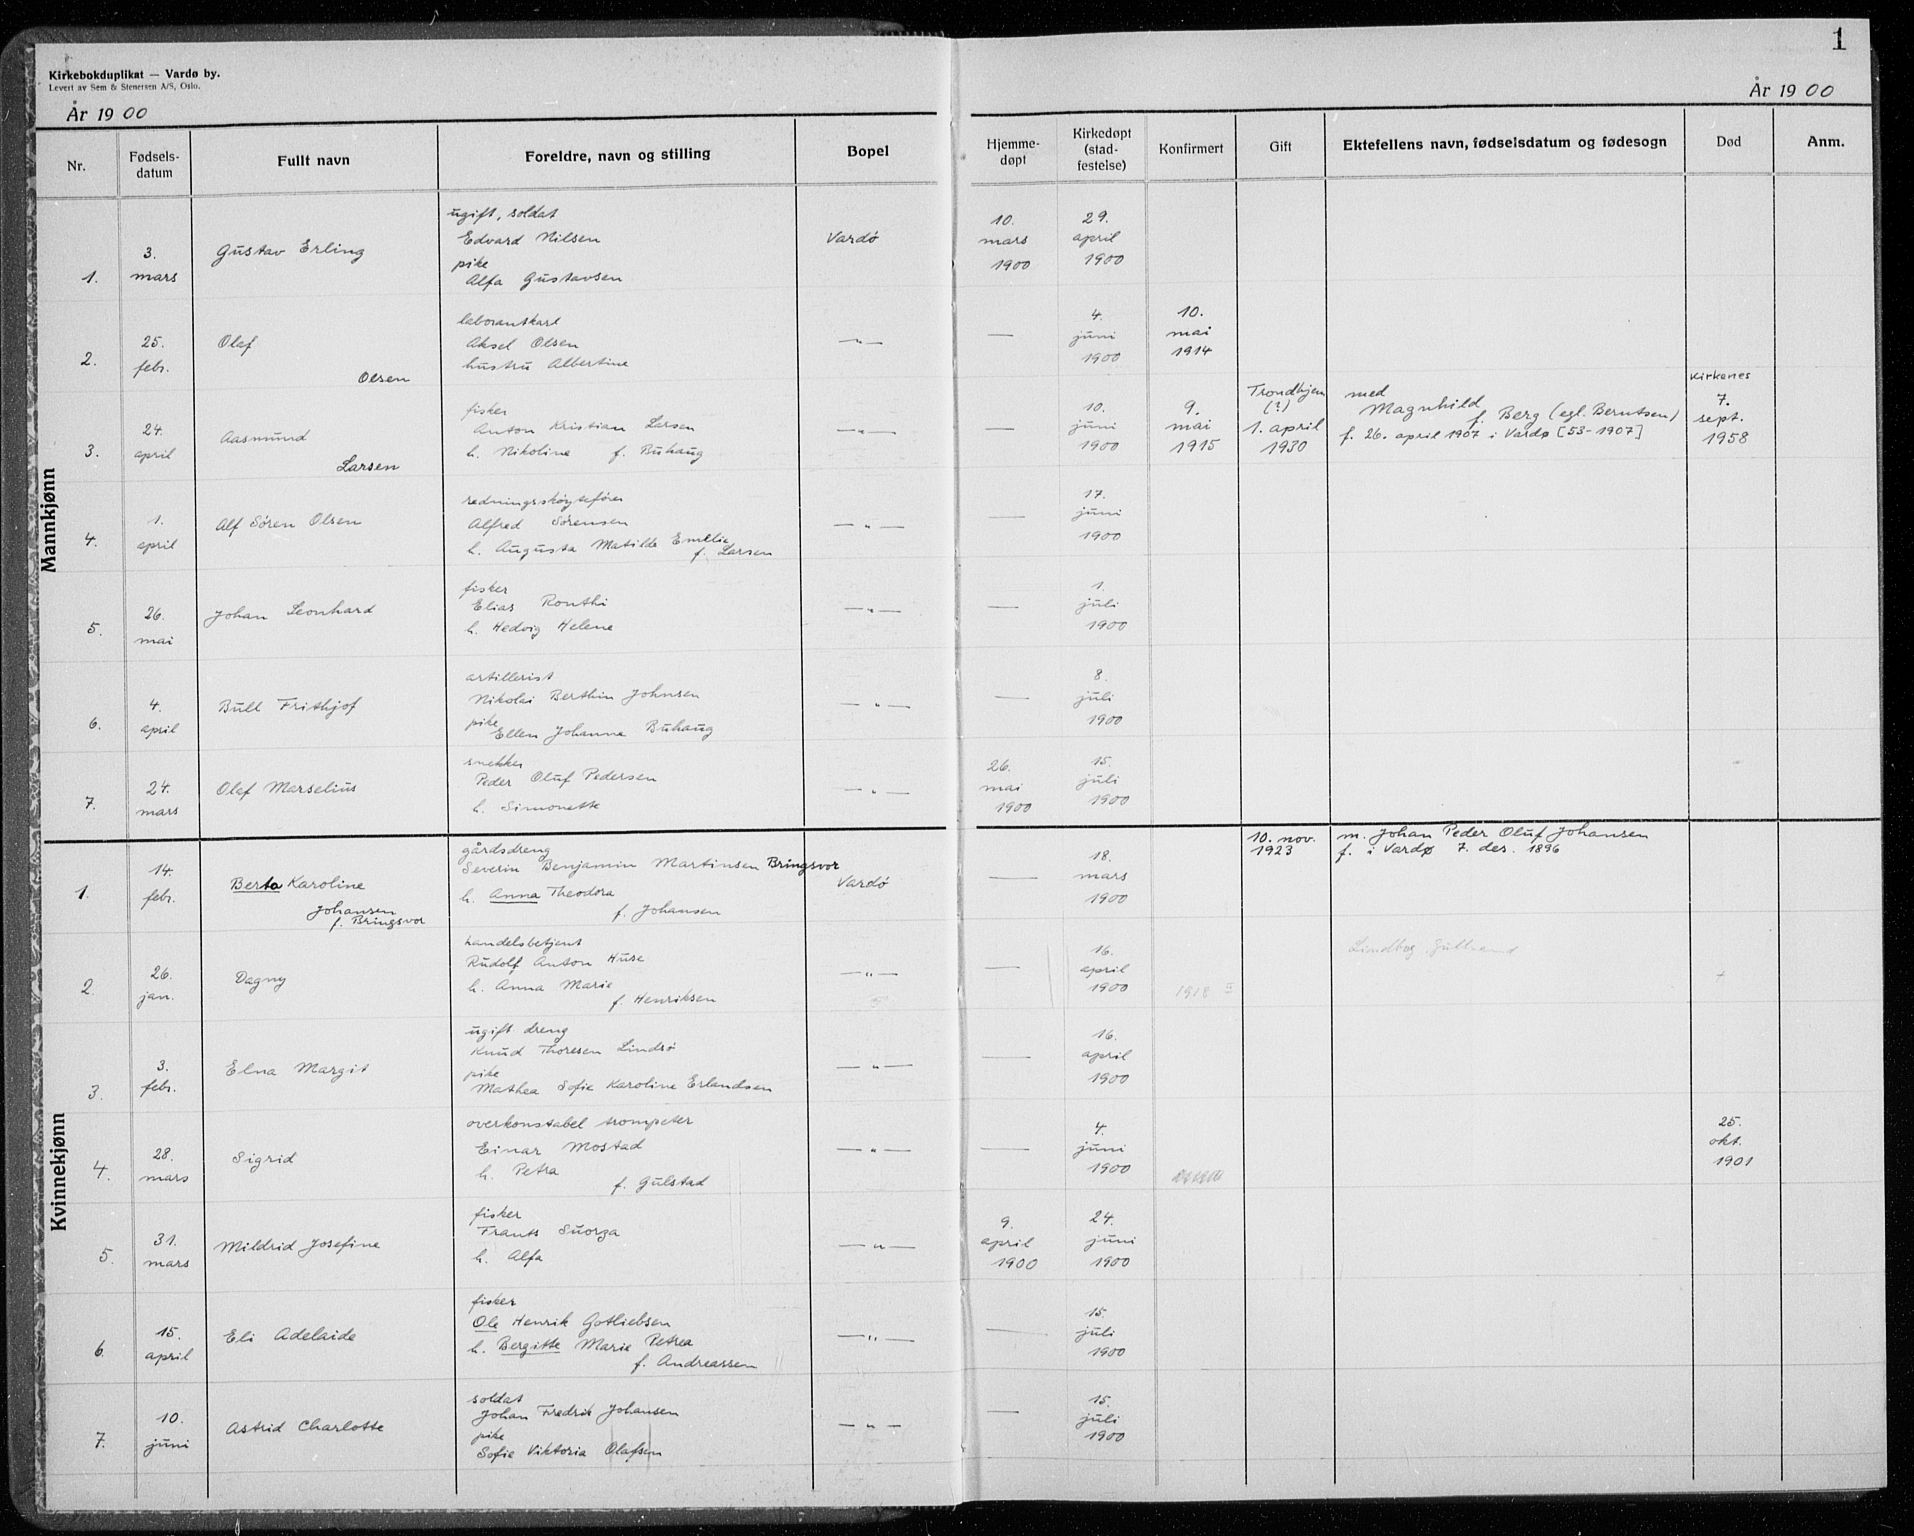 1
Kirkebokduplikat — Vardø by.
Levert av Sem & Stenersen A/S, Oslo.
År 1900
År 1900
Nr. Fødsels-datum Fullt navn Foreldre, navn og stilling Bopel Hjemme-døpt Kirkedøpt (stad-festelse) Konfirmert Gift Ektefellens navn, fødselsdatum og fødesogn Død Anm.
Mannkjønn
1. 3. mars
Gustav Erling
ugift, soldat
Edvard Nilsen
pike
Alfa Gustavsen
Vardø
10. mars 1900
29. april 1900
2. 25. febr.
Olaf
Olsen
laborantkarl
Aksel Olsen
hustru Albertine
—"—
—
4. juni 1900
10. mai 1914
3. 24. april
Aasmund
Larsen
fisker
Anton Kristian Larsen
h. Nikoline f. Buhaug
—"—
—
10. juni 1900
9. mai 1915
Trondhjem (?)
1. april 1930
med
Magnhild
f. Berg (egl. Berntsen)
f. 26. april 1907 i Vardø [53-1907]
Kirkenes
7. sept. 1958
4. 1. april
Alf Søren Olsen
redningsskøytefører
Alfred Sørensen
h. Augusta Matilde Emelie
f. Larsen
—"—
—
17. juni 1900
5. 26. mai
Johan Leonhard
fisker
Elias Ronthi
h. Hedvig Helene
—"—
—
1. juli 1900
6. 4. april
Bull Frithjof
artillerist
Nikolai Berthin Johnsen
pike
Ellen Johanne Buhaug
—"—
—
8. juli 1900
7. 24. mars
Olaf Marselius
snekker
Peder Oluf Pedersen
h. Simonette
—"—
26. mai 1900
15. juli 1900
Kvinnekjønn
1. 14. febr.
Berta Karoline
Johansen
f. Bringsvor
gårdsdreng
Severin Benjamin Martinsen Bringsvor
h. Anna Theodora
f. Johansen
Vardø
—
18. mars 1900
10. nov. 1923
m. Johan Peder Oluf Johansen
f. i Vardø 7. des. 1896
2. 26. jan.
Dagny
handelsbetjent
Rudolf Anton Huse
h. Anna Marie
f. Henriksen
—"—
—
16. april 1900
1918 II
+
3. 3. febr.
Elna Margit
ugift dreng
Knud Thoresen Lindsø
pike
Mathea Sofie Karoline Erlandsen
—"—
—
16. april 1900
4. 28. mars
Sigrid
overkonstabel trompeter
Einar Mostad
h. Petra
f. Gulstad
—"—
—
4. juni 1900
25. okt. 1901
5. 31. mars
Mildrid Josefine
fisker
Frants Suorza
h. Alfa
—"—
9. april 1900
24. juni 1900
6. 15. april
Eli Adelaide
fisker
Ole Henrik Gotliebsen
h. Bergitte Marie Petrea
f. Andreassen
—"—
—
15. juli 1900
7. 10. juni
Astrid Charlotte
soldat
Johan Fredrik Johansen
pike
Sofie Viktoria Olafsen
—"—
—
15. juli 1900